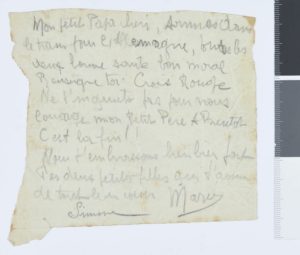 Mon petit Papa chéri, sommes dans
le train pour l'Allemagne, toutes les
deux bonne santé bon moral
Renseigne toi Croix Rouge
Ne t'inquiète pas pour nous
courage mon petit Père à Bientôt
C'est la fin !
Nous t'embrassons bien bien fort
Tes deux petites filles qui t'aiment
de tout leur cœur
Simone